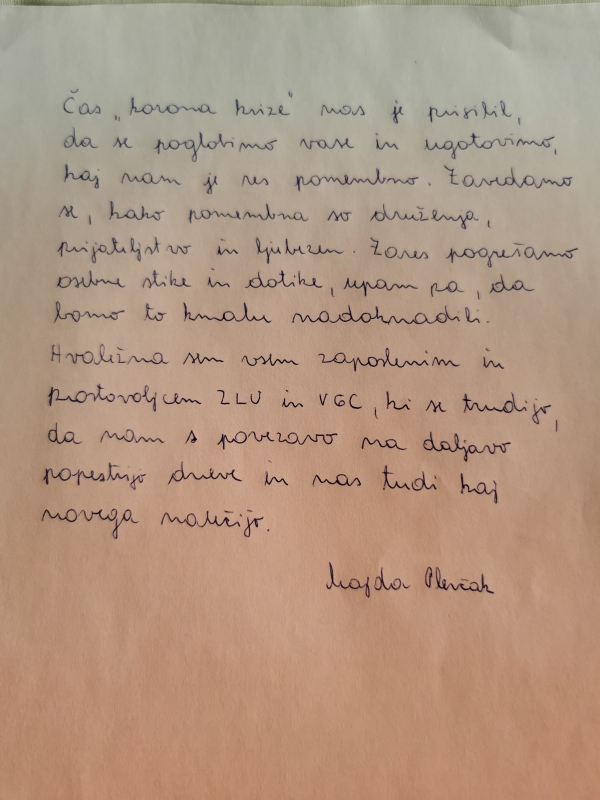 Čas „korona krize" nas je prisilil,
da se poglobimo vase in ugotovimo,
kaj nam je res pomembno. Zavedamo
se, kako pomembna so druženja,
prijateljstvo in ljubezen. Zares pogrešamo
osebne stike in dotike, upam pa, da
bomo to kmalu nadoknadili.
Hvaležna sem vsem zaposlenim in
prostovoljcem ZLU in VGC, ki se trudijo,
da nam s povezavo na daljavo
popestrijo dneve in nas tudi kaj
novega naležijo.
Majda Plevčak